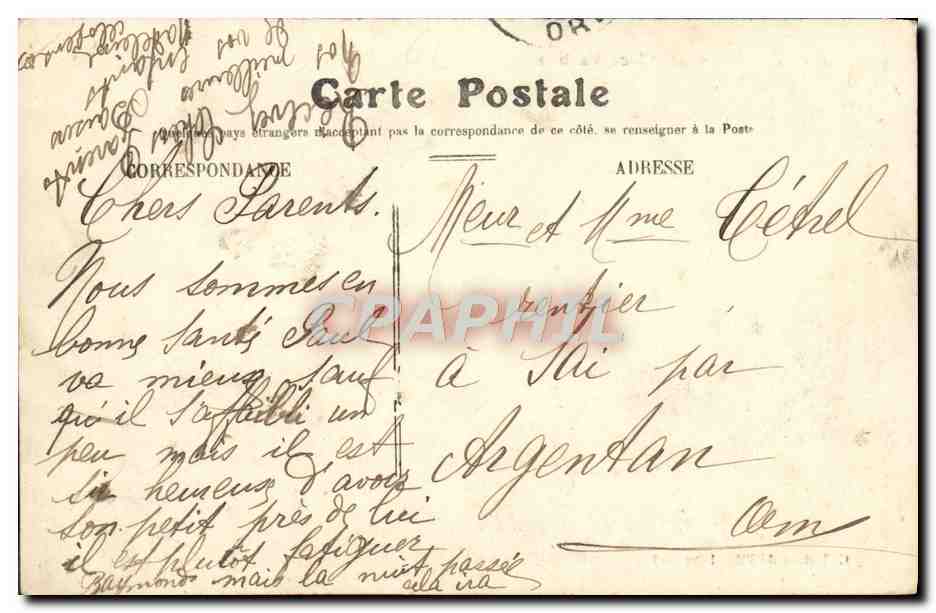 OR
Carte Postale
Quelques pays étrangers n'acceptant pas la correspondance de ce côté. se renseigner à la Poste
CORRESPONDANCE
ADRESSE
Chers Parents.
Nous sommes en
bonne santé Paul
va mieux sauf
qu'il s'affaibli un
peu mais il est
si heureux d'avoir
son petit près de lui
il est plutôt fatiguer
Raymonde mais la nuit passée
cela ira
Recevez Chers Parents
Nos meilleurs Baisers
de vos enfants
Madeleine
Meur et Mme Tétrel
rentier
à Sai par
Argentan
Orn
CPAPHIL